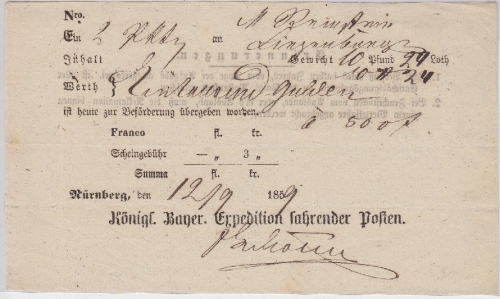 Nro.
Ein 2 Pkt an M Bernstein
Jnhalt Gewicht 10 Pfund 24 Loth
Werth { Eintausend Gulden 10 " 24
ist heute zur Beförderung übergeben worden. à 500 f
Franco fl. kr.
Scheingebühr — „ 3 „
Summa fl. kr.
Nürnberg, den 12/9 1859
Königl. Bayer. Expedition fahrender Posten.